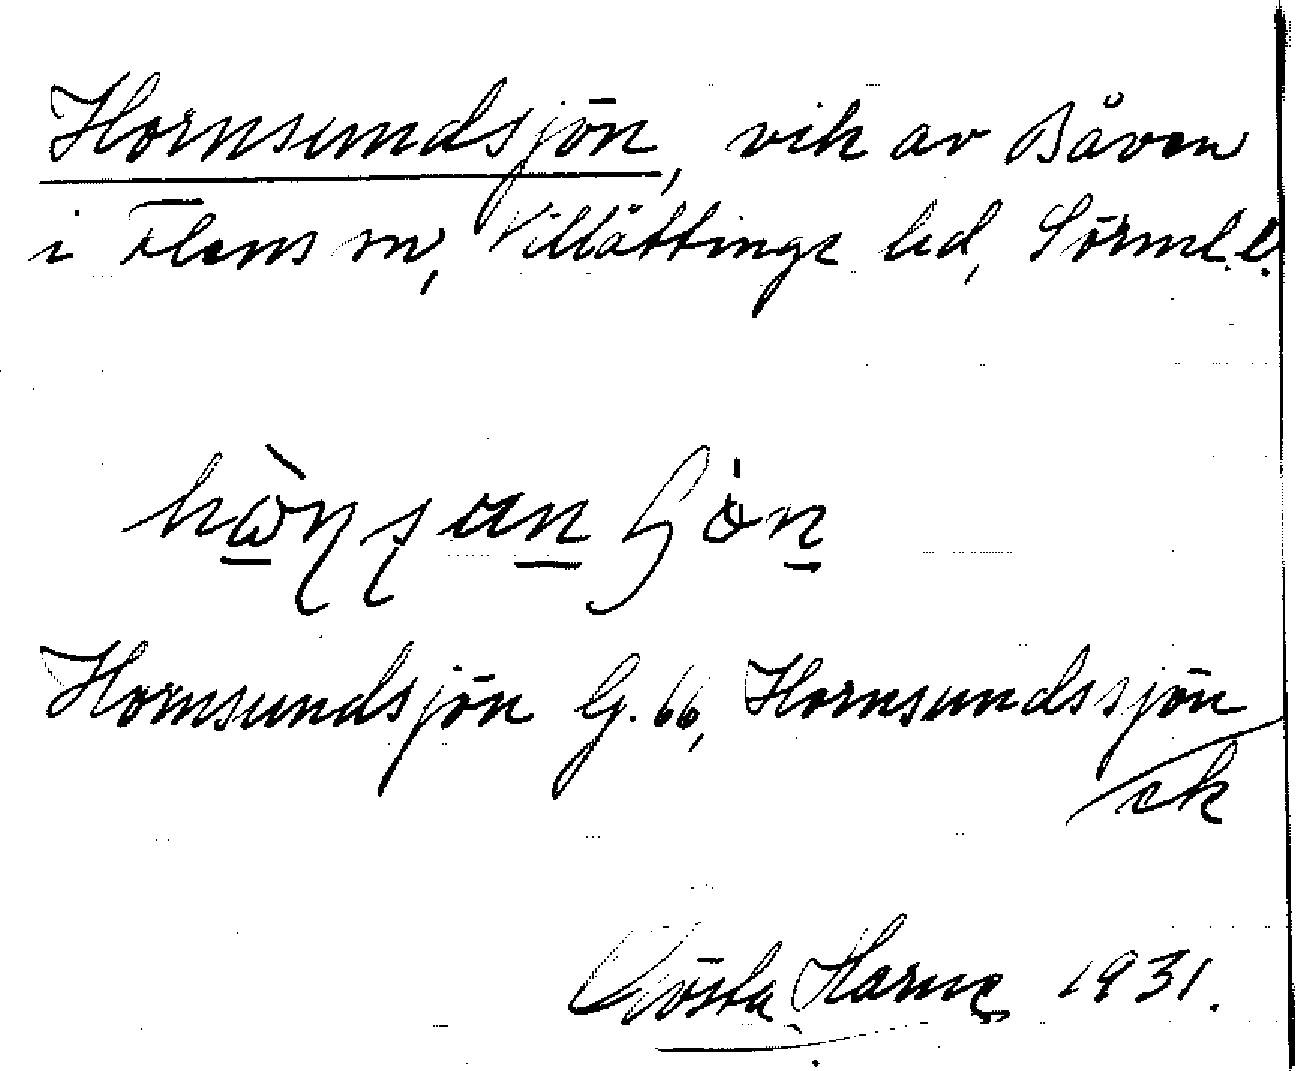 Hornsundsjön, vik av Båven
i Flens sn, Villåttinge hd, Sörml. l.
Hornsundsjön G. 66, Hornsundssjön
ek
Gösta Harne 1931.